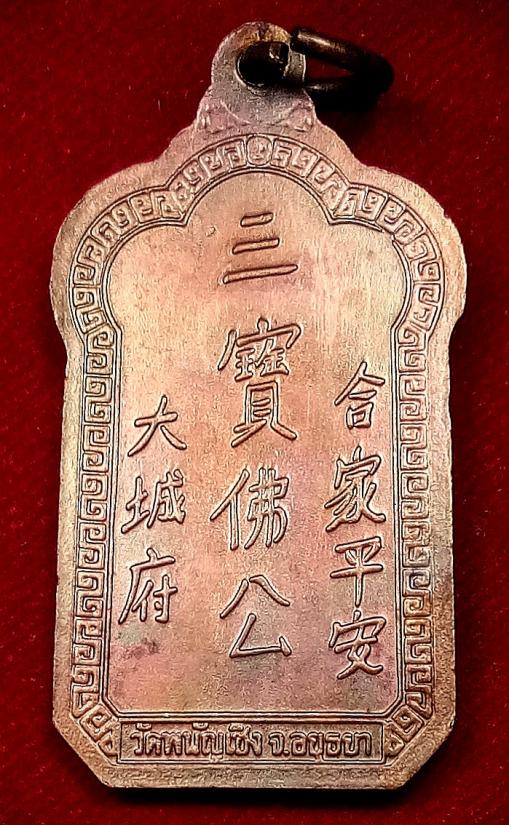 合家平安
三寶佛公
大城府
วัดพนัญเชิง จ.อยุธยา